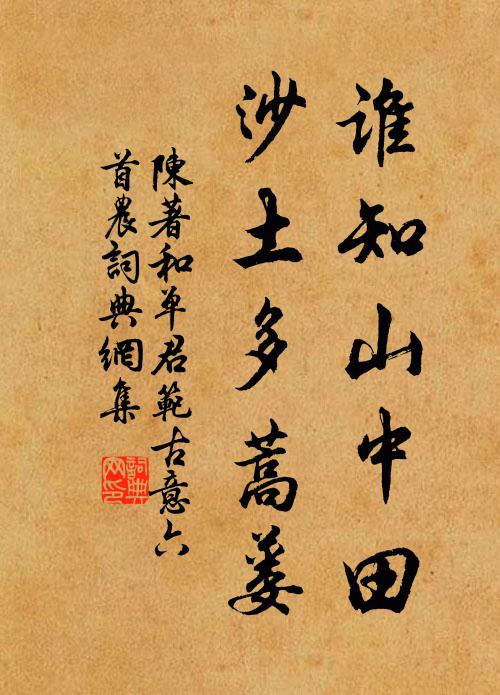 谁知山中田
沙土多蒿蒌
陳著和單君範古意六
首農詞典網集
詞典网印